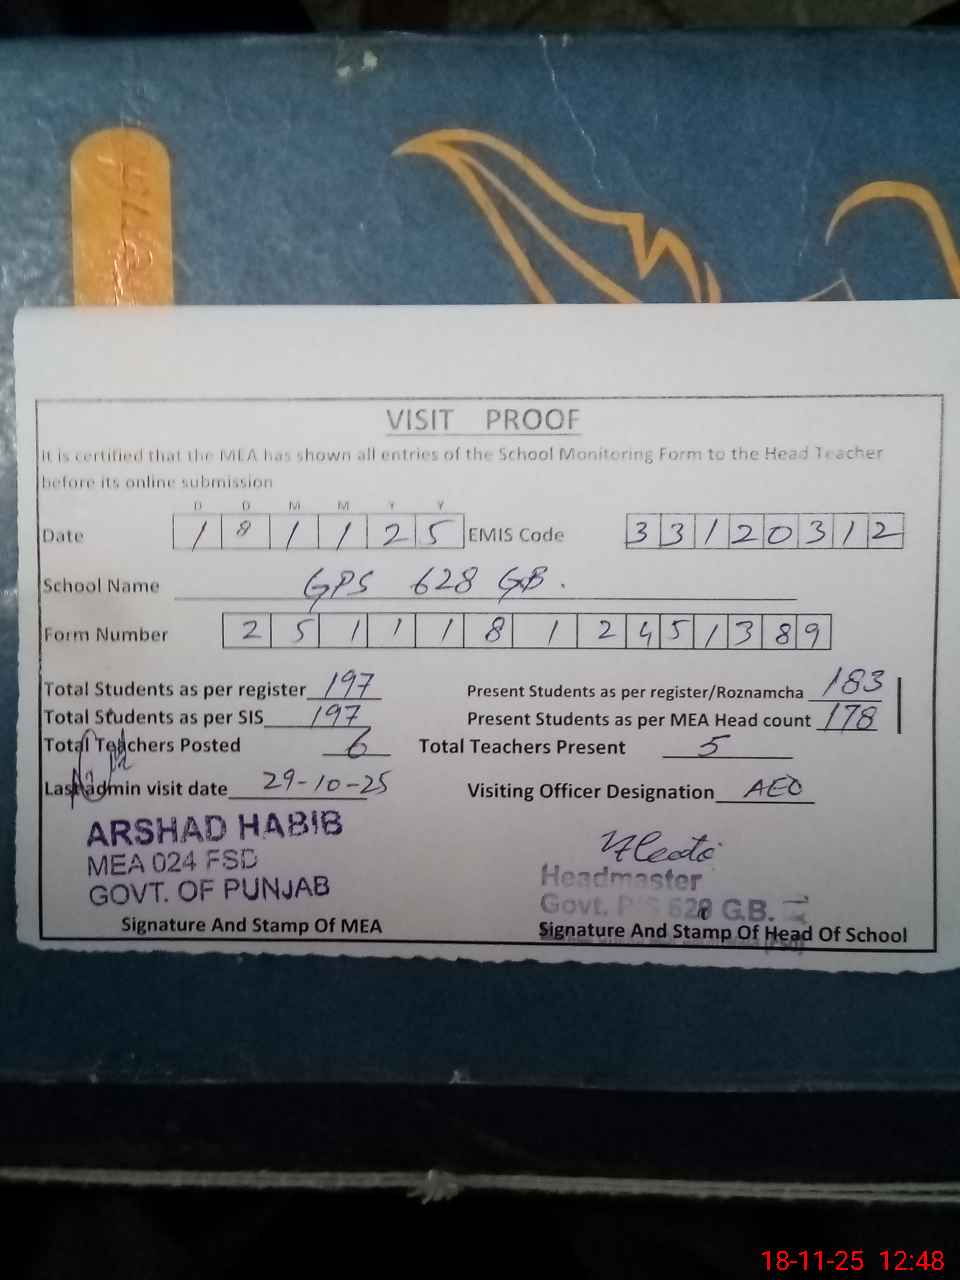 VISIT PROOF
It is certified that the MEA has shown all entries of the School Monitoring Form to the Head Teacher
before its online submission
D D M M Y Y
Date 1 8 1 1 2 5 EMIS Code 3 3 1 2 0 3 1 2
School Name GPS 628 GB.
Form Number 2 5 1 1 1 8 1 2 4 5 1 3 8 9
Total Students as per register 197 Present Students as per register/Roznamcha 183
Total Students as per SIS 197 Present Students as per MEA Head count 178
Total Teachers Posted 6 Total Teachers Present 5
Last admin visit date 29-10-25 Visiting Officer Designation AEO
ARSHAD HABIB
MEA 024 FSD
GOVT. OF PUNJAB
Signature And Stamp Of MEA
Headmaster
Govt. P/S 628 G.B.
Signature And Stamp Of Head Of School
18-11-25 12:48